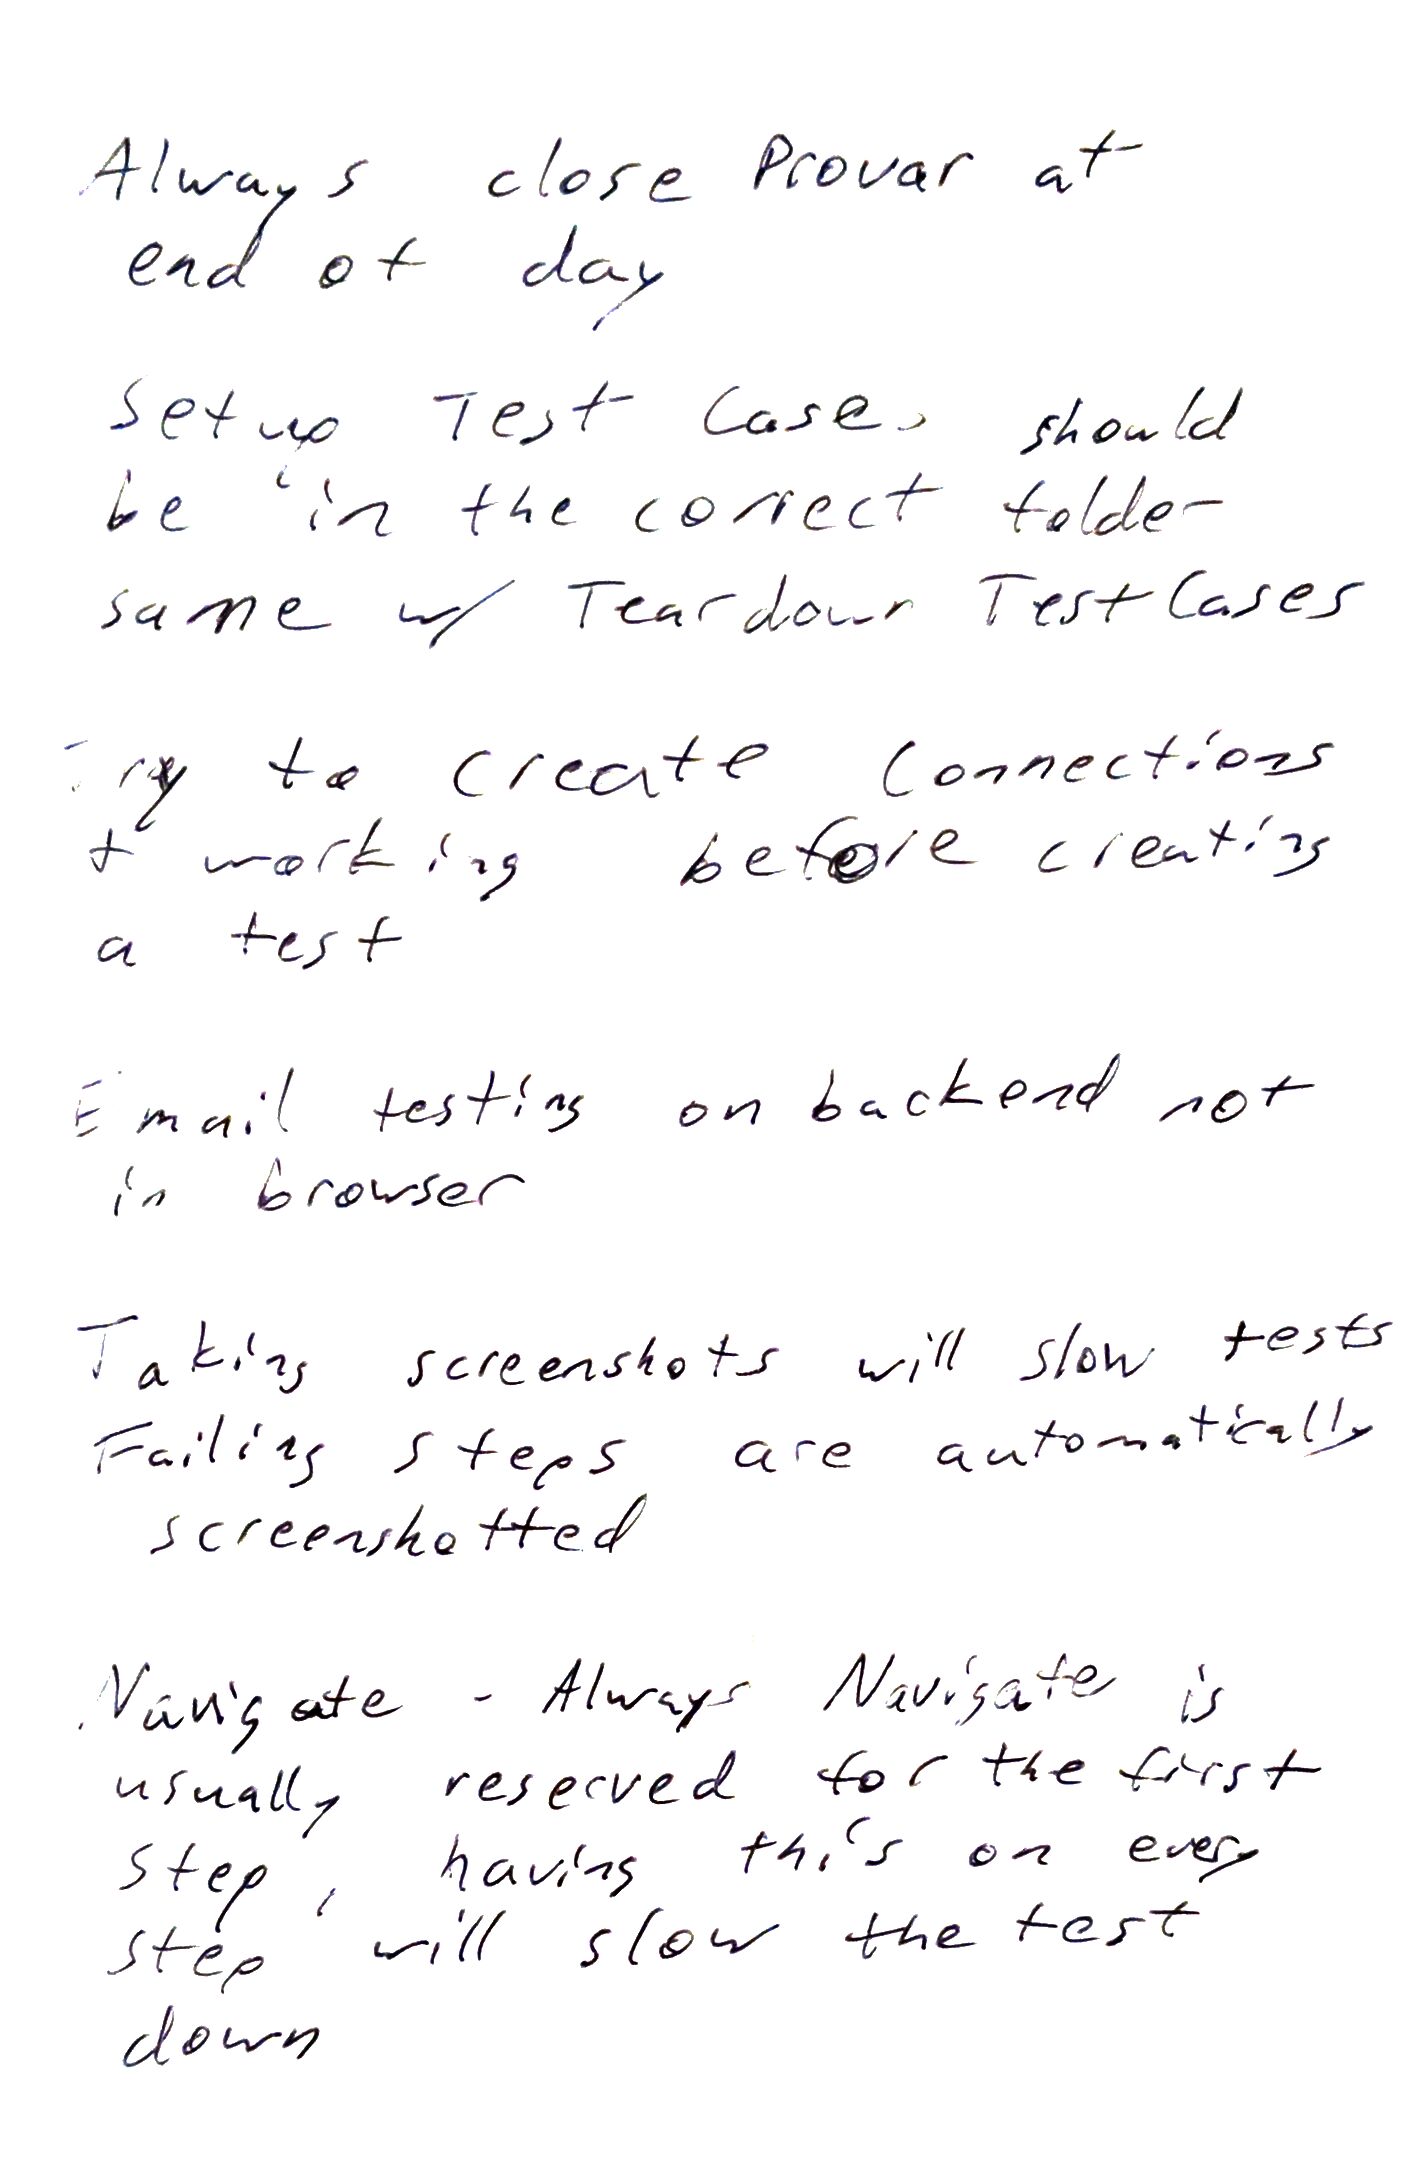 Always close Provar at
end of day
Setup Test Cases should
be in the correct folder
same w/ Teardown TestCases
Try to create Connections
+ working before creating
a test
Email testing on backend not
in browser
Taking screenshots will slow tests
Failing steps are automatically
screenshotted
Navigate - Always Navigate is
usually reserved for the first
step, having this on every
step will slow the test
down